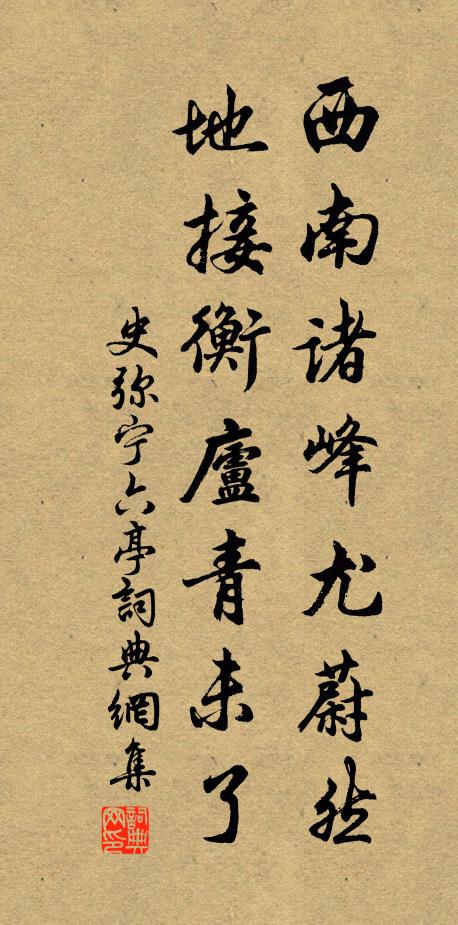 西南诸峰尤蔚然
地接衡廬青未了
史弥宁六亭詞典網集
詞典网印